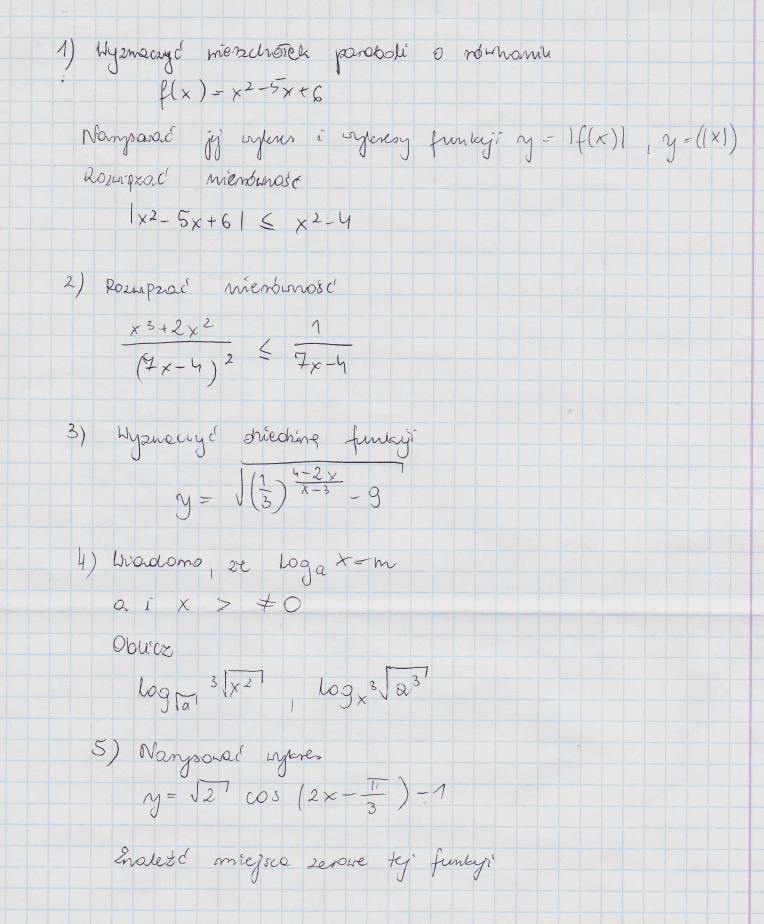 1) Wyznaczyć wierzchołek paraboli o równaniu
f(x) = x² - 5x + 6
Narysować jej wykres i wykresy funkcji y = |f(x)|, y = (|x|)
Rozwiązać nierówność
|x² - 5x + 6| ≤ x² - 4
2) Rozwiązać nierówność
(x³ + 2x²)/(7x - 4)² ≤ 1/(7x - 4)
3) Wyznaczyć dziedzinę funkcji
y = √((1/3)^((4-2x)/(x-3)) - 9)
4) Wiadomo, że logₐ x = m
a i x > ≠ 0
Oblicz
log_√a ³√x² , log_x ³√a³
5) Narysować wykres
y = √2 cos (2x - π/3) - 1
Znaleźć miejsca zerowe tej funkcji